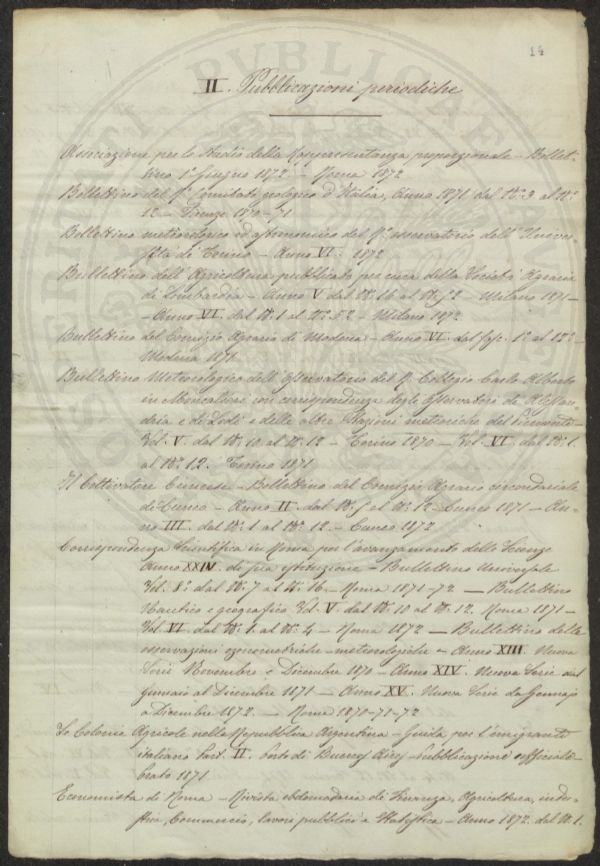 14
II. Pubblicazioni periodiche
Associazione per lo studio della Rappresentanza proporzionale - Bollet-
tino 1° Giugno 1872 - Roma 1872
Bollettino del R° Comitato geologico d'Italia, Anno 1871 dal N° 3 al N°
12 - Firenze 1870-71
Bollettino meteorologico ed astronomico del R° osservatorio dell'Univer-
sità di Torino - Anno VI. 1872
Bullettino dell'Agricoltura pubblicato per cura della Società Agraria
di Lombardia - Anno V dal N. 16 al N. 52 - Milano 1871 -
- Anno VI. dal N. 1 al N° 52 - Milano 1872
Bullettino del Comizio Agrario di Modena - Anno VI. dal fasc. 1° al 13° -
Modena 1871.
Bullettino Meteorologico dell'Osservatorio del R. Collegio Carlo Alberto
in Moncalieri con corrispondenza degli Osservatori di Alessan-
dria e di Lodi e delle altre Stazioni meteoriche del Piemonte -
Vol. V. dal N. 10 al N. 12 - Torino 1870 - Vol. VI. dal N. 1.
al N. 12. Torino 1871
Il Coltivatore Cuneese - Bollettino del Comizio Agrario circondariale
di Cuneo - Anno II. dal N. 5 al N. 12 - Cuneo 1871 - An-
no III. del N. 1 al N. 12. - Cuneo 1872
Corrispondenza Scientifica in Roma per l'avanzamento delle Scienze
Anno XXIV. di sua istituzione - Bullettino Universale
Vol. 8° dal N. 7 al N. 16. - Roma 1871-72 - Bullettino
Nautico e geografico Vol. V. dal N. 10 al N. 12. Roma 1871 -
Vol VI. dal N. 1. al N. 4 - Roma 1872 - Bullettino delle
osservazioni ozonometriche-meteorologiche - Anno XIII. Nuova
Serie Novembre e Dicembre 1870 - Anno XIV. Nuova Serie dal
Gennaio al Dicembre 1871 - Anno XV. Nuova Serie da Gennajo
a Dicembre 1872. - Roma 1870-71-72
Le Colonie Agricole nella Repubblica Argentina - Guida per l'emigrante
italiano Part. II. Porto di Buenos Aires - Pubblicazione
1871
Economista di Roma - Rivista ebdomadaria di Finanza, Agricoltura, indu-
stria, Commercio, lavori pubblici e Statistica - Anno 1872. dal N. 1.